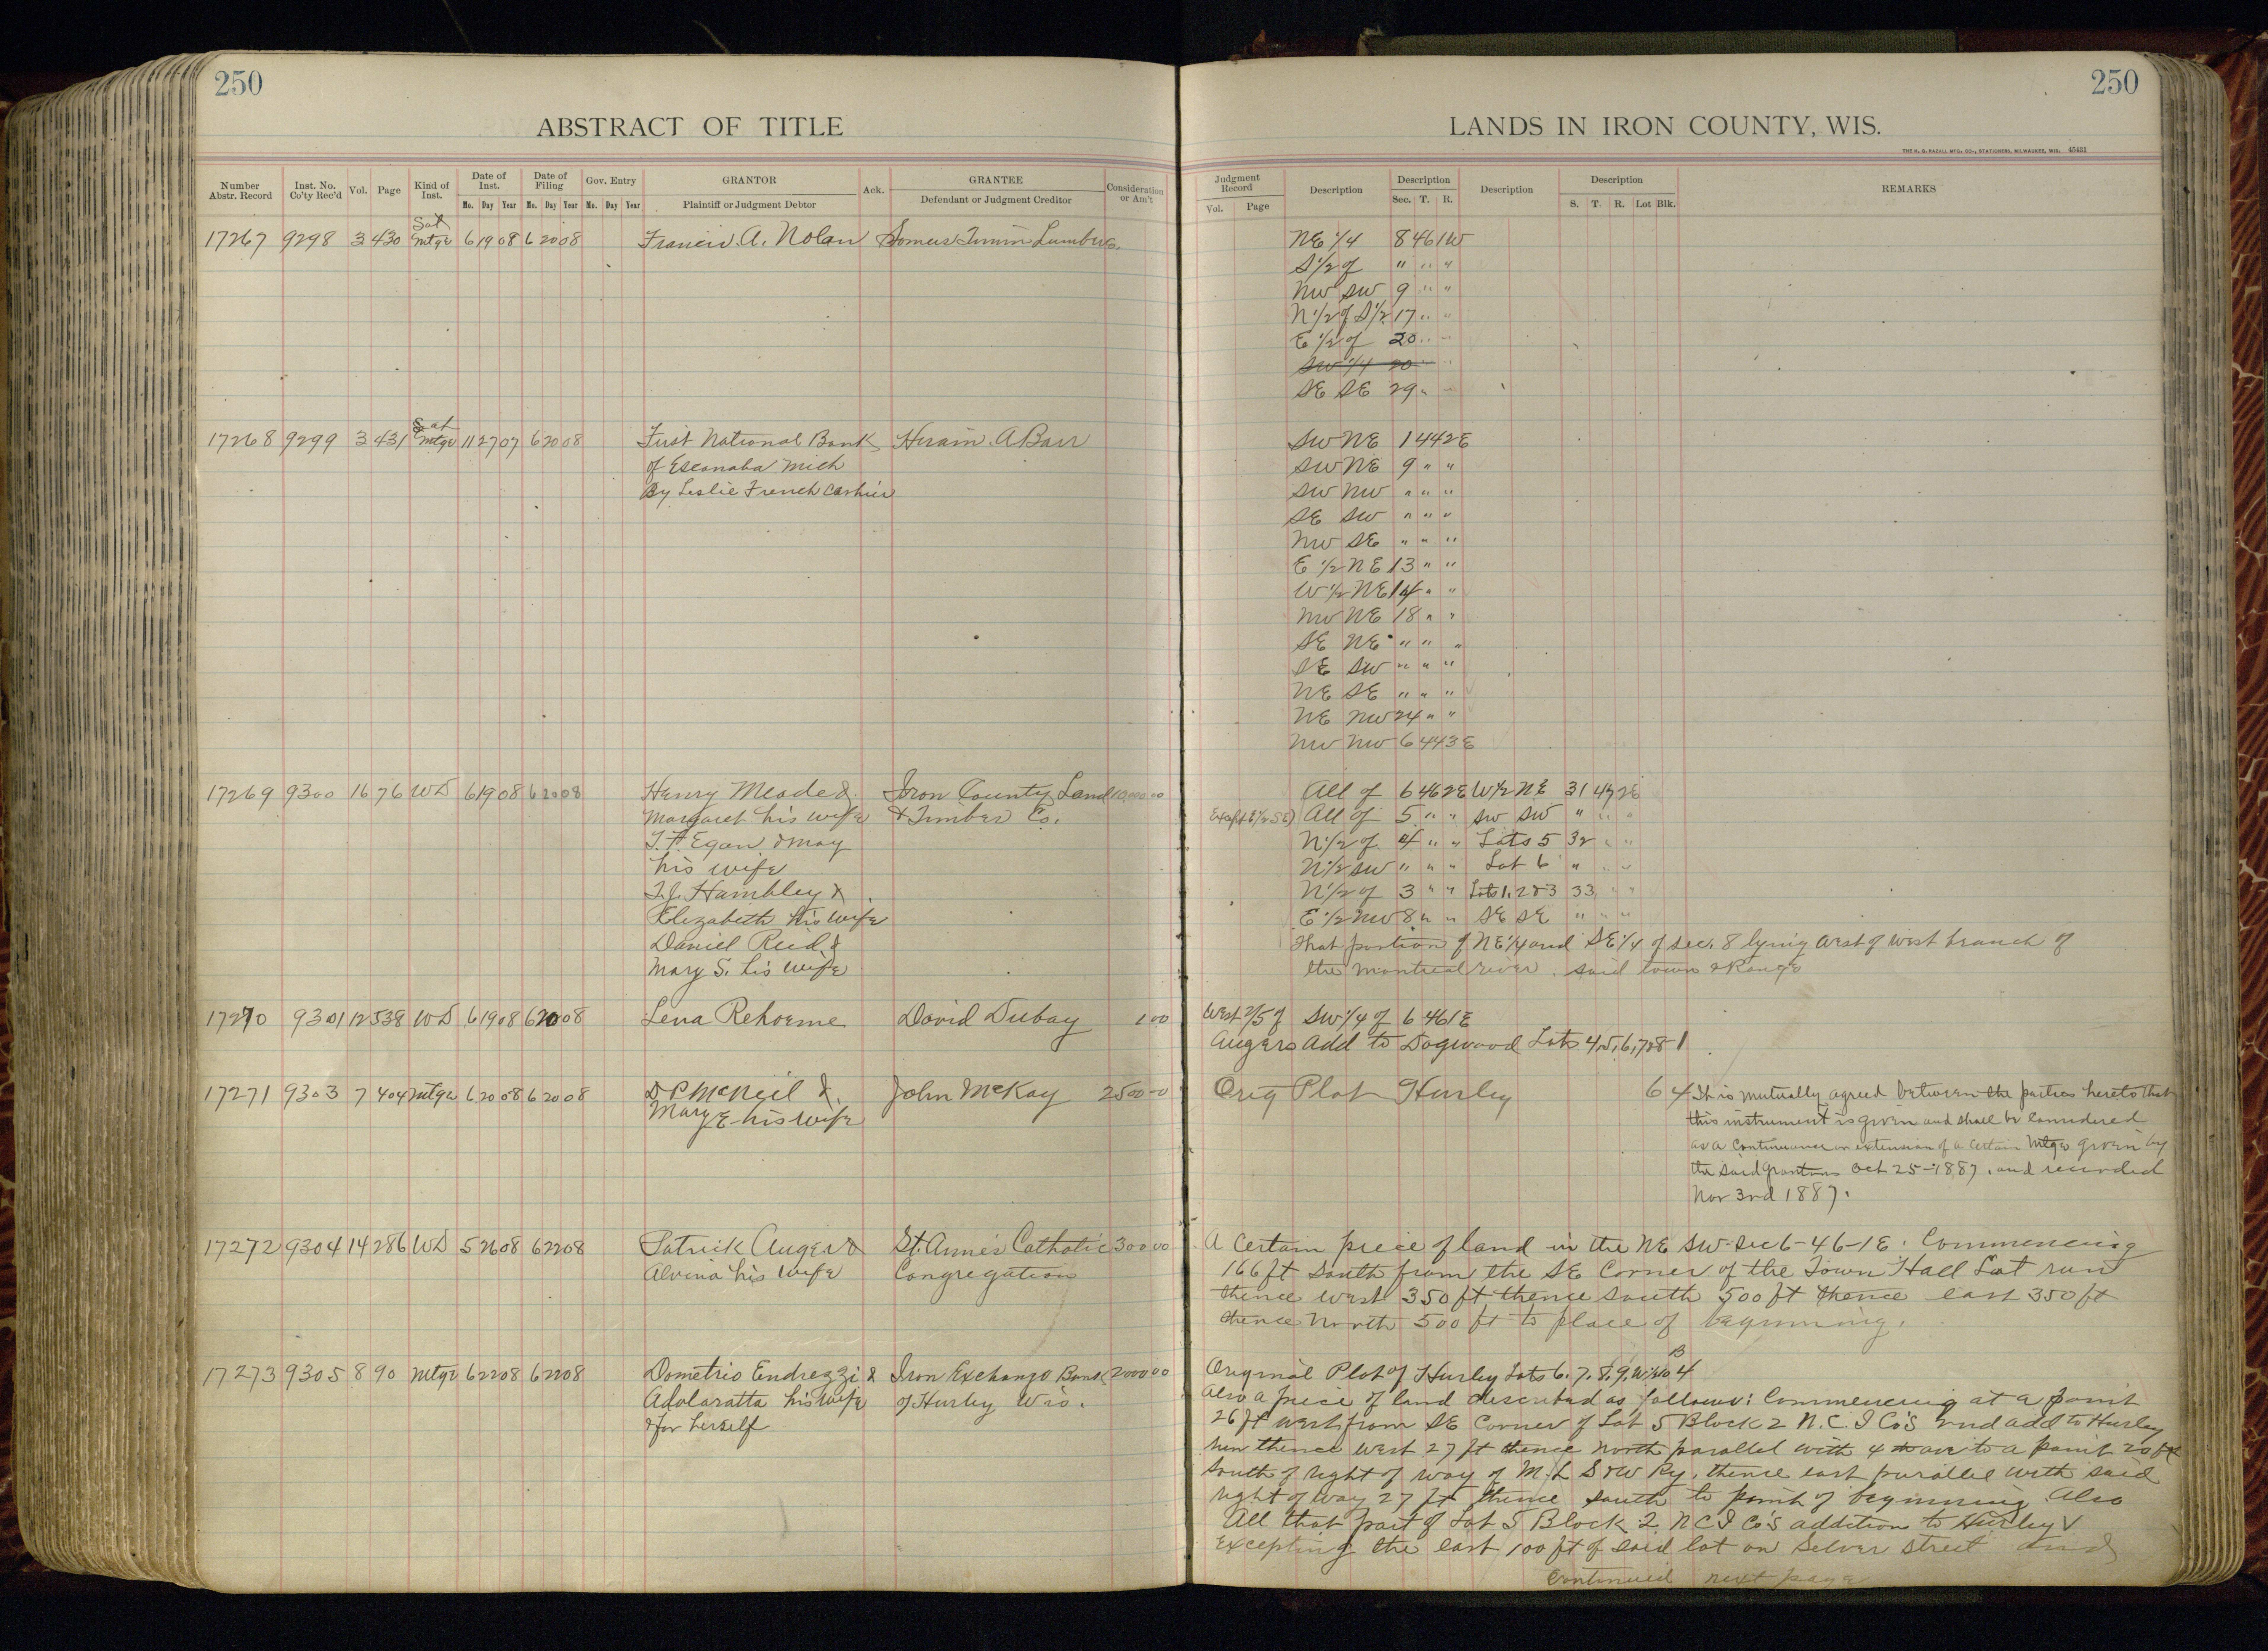 250
250
ABSTRACT OF TITLE
LANDS IN IRON COUNTY, WIS.
THE H. G. RAZALL MFG. CO., STATIONERS, MILWAUKEE, WIS. 45431
Number Abstr. Record
Inst. No. Co'ty Rec'd
Vol.
Page
Kind of Inst.
Date of Inst.
Mo. Day Year
Date of Filing
Mo. Day Year
Gov. Entry
Mo. Day Year
GRANTOR
Plaintiff or Judgment Debtor
Ack.
GRANTEE
Defendant or Judgment Creditor
Consideration or Am't
Judgment Record
Vol. Page
Description
Description
Sec. T. R.
Description
Description
S. T. R. Lot Blk.
REMARKS
17267 9298 3 430 Sat Mtge 6 19 08 6 20 08 Francis A. Nolan Lumber Co.
NE 1/4 8 46 1W
S 1/2 of " " "
NW SW 9 " "
N 1/2 of S 1/2 17 " "
E 1/2 of 20 " "
SW 1/4 20 " "
SE SE 29 " "
17268 9299 3 431 Sat Mtge 11 27 07 6 20 08 First National Bank Hiram A Barr
of Escanaba Mich
By Leslie French Cashier
SW NE 1 44 2E
SW NE 9 " "
SW NW " " "
SE SW " " "
NW SE " " "
E 1/2 NE 13 " "
W 1/2 NE 14 " "
NW NE 18 " "
SE NE " " "
SE SW " " "
NE SE " " "
NE NW 24 " "
NW NW 6 44 3E
17269 9300 16 76 WD 6 19 08 6 20 08 Henry Meade & Iron County Land 10,000 00
Margaret his wife & Timber Co.
T. F. Egan & May
his wife
T. J. Hambley &
Elizabeth his wife
Daniel Reid &
Mary S. his wife
All of 6 46 2E W 1/2 NE 31 47 2E
Except E 1/2 SE) All of 5 " " SW SW " " "
N 1/2 of 4 " " Lots 5 32 " "
N 1/2 SW " " " Lot 6 " " "
N 1/2 of 3 " " Lots 1, 2 & 3 33 " "
E 1/2 NW 8 " " SE SE " " "
That portion of NE 1/4 and SE 1/4 of sec. 8 lying West of west branch of
the Montreal river. said town & Range
17270 9301 12 538 WD 6 19 08 6 20 08 Lena David Dubay 1 00
West 2/5 of SW 1/4 of 6 46 1E
Augers Add to Dogwood Lots 4, 5, 6, 7 & 8 1
17271 9303 7 404 Mtge 6 20 08 6 20 08 D P McNeil & John McKay 2500 00
Mary E his wife
Orig Plat Hurley 6 4 It is mutually agreed between the parties hereto that
this instrument is given and shall be considered
as a continuance or extension of a certain Mtge given by
the said grantors Oct 25-1887. and recorded
Nov 3rd 1887.
17272 9304 14 286 WD 5 26 08 6 22 08 Patrick Auger & St. Anne's Catholic 300 00
Alvina his wife Congregation
A Certain piece of land in the NE SW- Sec 6-46-1E. Commencing
166 ft south from the SE Corner of the Town Hall Lot run
thence west 350 ft thence south 500 ft thence east 350 ft
thence North 500 ft to place of beginning.
17273 9305 8 90 Mtge 6 22 08 6 22 08 Dometrio Endrezzi & Iron Exchange Bank 2000 00
Adolaratta his wife of Hurley Wis.
& for herself
Original Plat of Hurley Lots 6. 7. 8. 9, B 4
Also a piece of land described as follows: Commencing at a point
26 ft west from SE Corner of Lot 5 Block 2 N. C. I Co's 2nd add to Hurley
run thence west 27 ft thence north parallel with 4 th ave to a point 20 ft
south of right of way of M. L S & W Ry. thence east parallel with said
right of way 27 ft thence south to point of beginning Also
All that part of Lot 5 Block 2. N C I Co's addition to Hurley
Excepting the east 100 ft of said lot on Silver street and
Continued next page